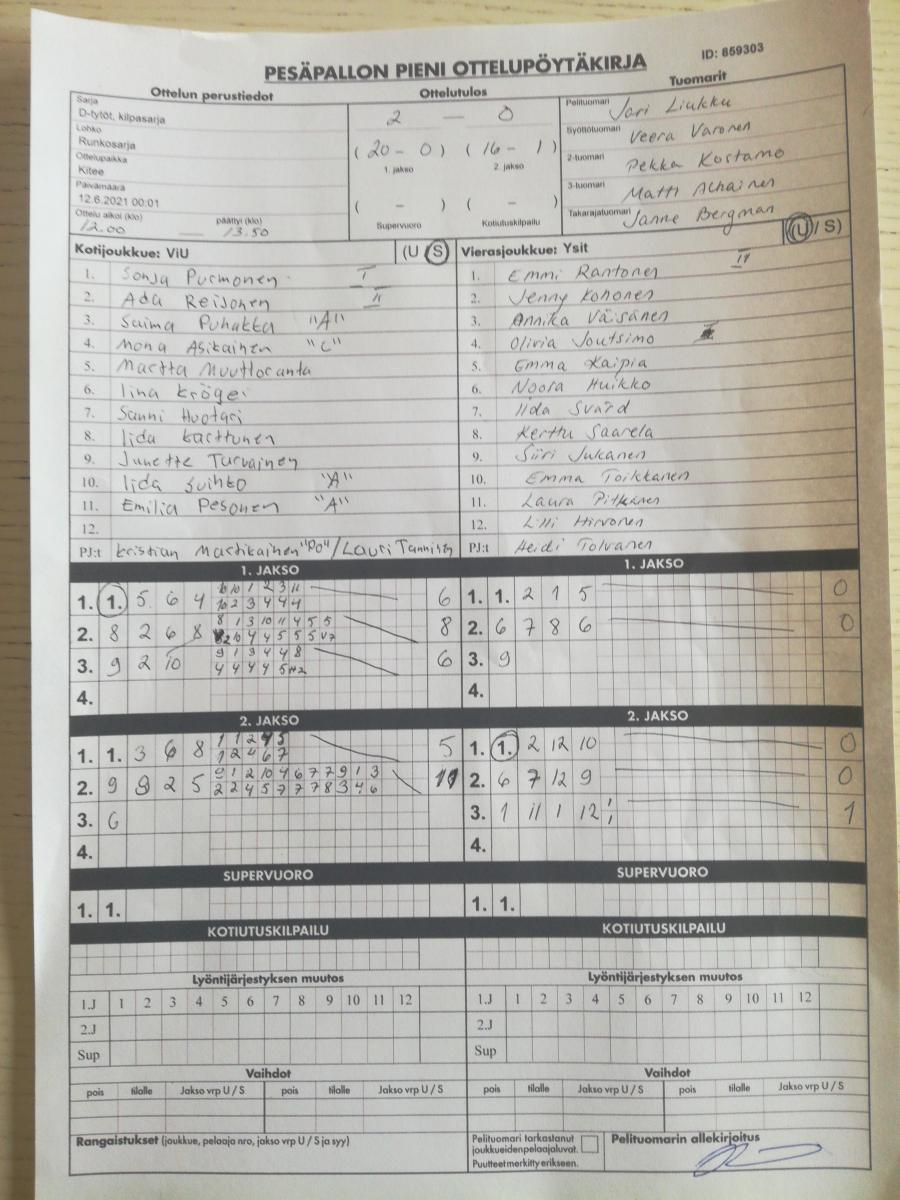 ID: 859303
PESÄPALLON PIENI OTTELUPÖYTÄKIRJA
Ottelun perustiedot Ottelutulos Tuomarit
Sarja
D-tytöt, kilpasarja
Lohko
Runkosarja
Ottelupaikka
Kitee
Päivämäärä
12.6.2021 00:01
Ottelu alkoi (klo) päättyi (klo)
12.00 — 13.50
2 — 0
(20 - 0) (16 - 1)
1. jakso 2. jakso
( - ) ( - )
Supervuoro Kotiutuskilpailu
Pelituomari Jari Liukku
Syöttötuomari Veera Varonen
2-tuomari Pekka Kostamo
3-tuomari Matti
Takarajatuomari Janne Bergman
Kotijoukkue: ViU (U S) Vierasjoukkue: Ysit (U / S)
1. Sonja Purmonen I 1. Emmi Rantonen II
2. Ada Reijonen II 2. Jenny Kohonen
3. Saima Puhakka "A" 3. Annika Väisänen
4. Mona Asikainen "C" 4. Olivia Joutsimo
5. Martta Muuttoranta 5. Emma Kaipia
6. Iina Kröger 6. Noora Huikko
7. Sanni Huotari 7. Iida Svärd
8. Iida Karttunen 8. Kerttu Saarela
9. Junette Turvainen 9. Siiri Jukanen
10. Iida Suihko "A" 10. Emma Toikkanen
11. Emilia Pesonen "A" 11. Laura Pitkänen
12. 12. Lilli Hirvonen
PJ:t Kristian Martikainen "PO" / Lauri PJ:t Heidi Tolvanen
1. JAKSO 1. JAKSO
1. 1. 5 6 4 6 1. 1. 2 1 5 0
10 10 1 2 3 11
10 2 3 4 4 4
2. 8 2 6 8 8 2. 6 7 8 6 0
8 1 3 10 11 4 5 5
3. 9 2 10 6 3. 9
9 1 3 4 4 8
4. 4.
2. JAKSO 2. JAKSO
1. 1. 3 6 8 5 1. 1. 2 12 10 0
1 2 4 6 7
2. 9 9 2 5 11 2. 6 7 12 9 0
9 1 2 10 4 6 7 7 9 1 3
2 2 4 5 7 7 7 8 3 4 6
3. 6 3. 1 11 1 12 1 1 1
4. 4.
SUPERVUORO SUPERVUORO
1. 1. 1. 1.
KOTIUTUSKILPAILU KOTIUTUSKILPAILU
Lyöntijärjestyksen muutos Lyöntijärjestyksen muutos
1.J 1 2 3 4 5 6 7 8 9 10 11 12 1.J 1 2 3 4 5 6 7 8 9 10 11 12
2.J 2.J
Sup Sup
Vaihdot Vaihdot
pois tilalle Jakso vrp U / S pois tilalle Jakso vrp U / S pois tilalle Jakso vrp U / S pois tilalle Jakso vrp U / S
Rangaistukset (joukkue, pelaaja nro, jakso vrp U / S ja syy)
Pelituomari tarkastanut
joukkueidenpelaajaluvat.
Puutteet merkitty erikseen.
Pelituomarin allekirjoitus